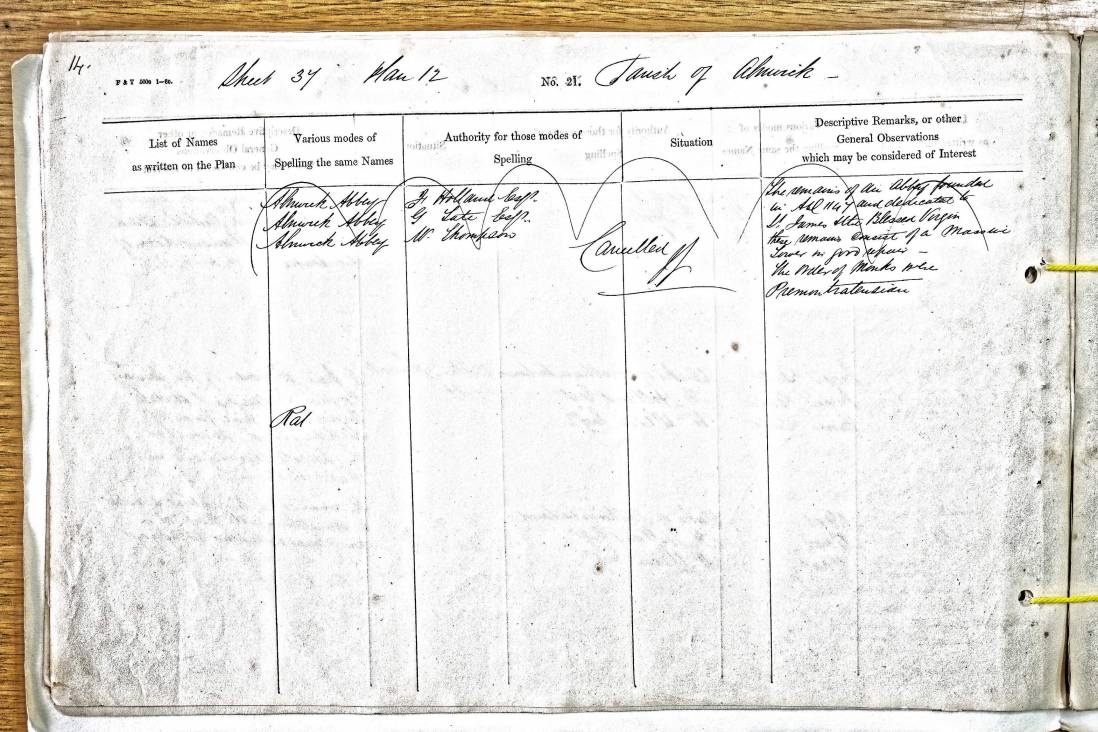 14.
F & T 500a 1—60. Sheet 37 Plan 12 No. 21. Parish of Alnwick —
List of Names
as written on the Plan
Various modes of
Spelling the same Names
Authority for those modes of
Spelling
Situation
Descriptive Remarks, or other
General Observations
which may be considered of Interest
Alnwick Abbey F Holland Esqr.
Alnwick Abbey G Tate Esqr.
Alnwick Abbey W. Thompson
Cancelled
The remains of an Abbey founded
in A.D. 1147 and dedicated to
St. James & the Blessed Virgin
these remains consist of a Massive
Tower in good repair —
The Order of Monks were
Premontratensian
Rat